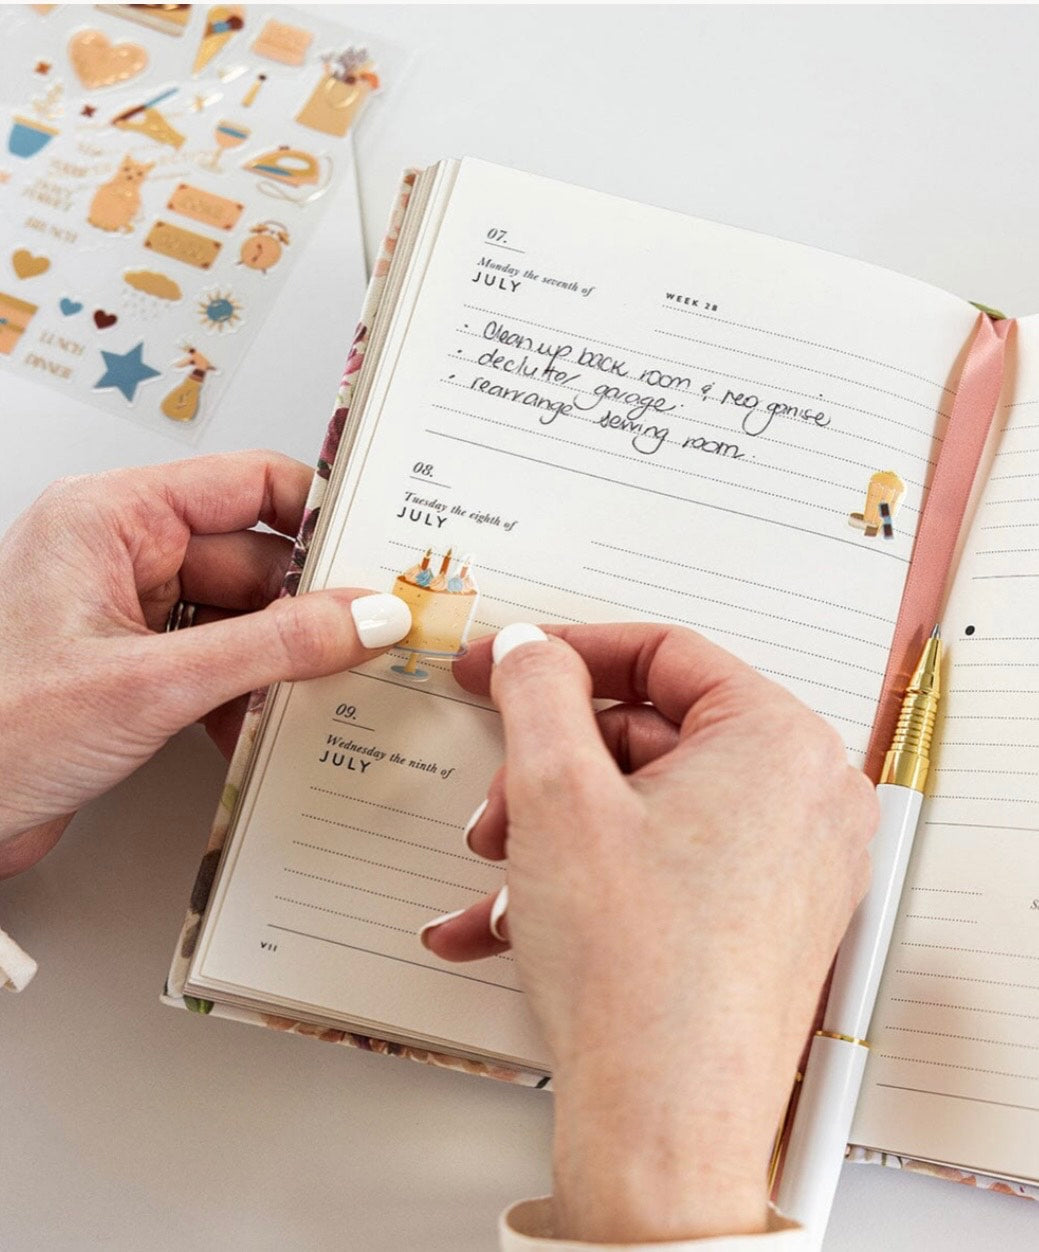 07.
Monday the seventh of
JULY
WEEK 28
• Clean up back room & reoganise
• declutter garage.
• rearrange sewing room.
08.
Tuesday the eighth of
JULY
09.
Wednesday the ninth of
JULY
VII
BRUNCH
LUNCH
DINNER